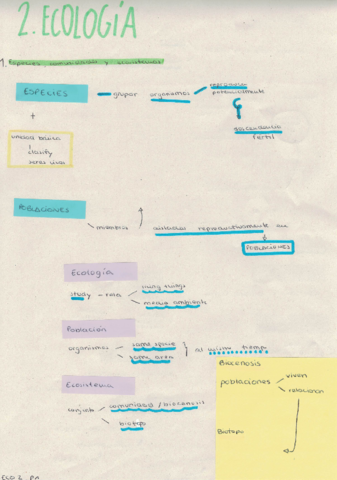 2. ECOLOGÍA
1. Especies, comunidades y ecosistemas
ESPECIES
grupos organismos
reproducirse
potencialmente
descendencia
fértil
+
unidad básica
clasify
seres vivos
POBLACIONES
miembros
aislados reproductivamente en
POBLACIONES
Ecología
study - rela
living things
medio ambiente
Población
organismos
same space
same area
al mismo tiempo
Ecosistema
conjunto
comunidad / biocenosis
biotopo
Biocenosis
poblaciones
viven
relacionan
Biotopo
ECO 2. P1